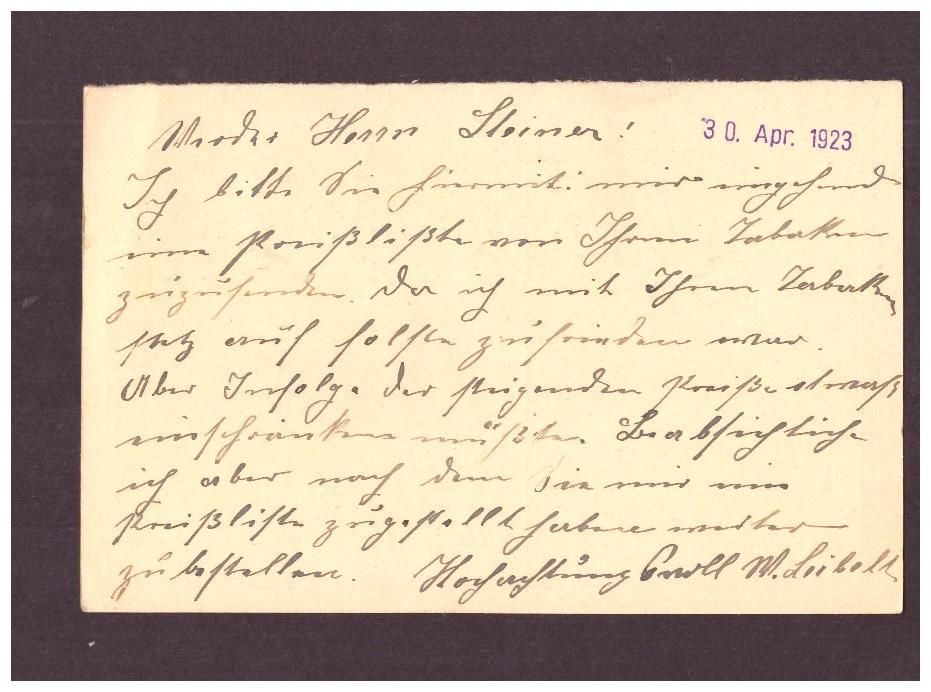 Werder Herrn Steiner!
30. Apr. 1923
Ich bitte Sie hiermit mir eingehend
eine Preißlißte von Ihren Tabaken
zuzusenden. Da ich mit Ihren Tabaken
stetz auf follste zufrieden war.
Aber Infolge der steigenden Preiße etwaß
einschränken müßte. Beabsichtiche
ich aber nach dem Sie mir eine
Preißliste zugestellt haben weiter
zu bestellen. Hochachtungsvoll W. Leibolt